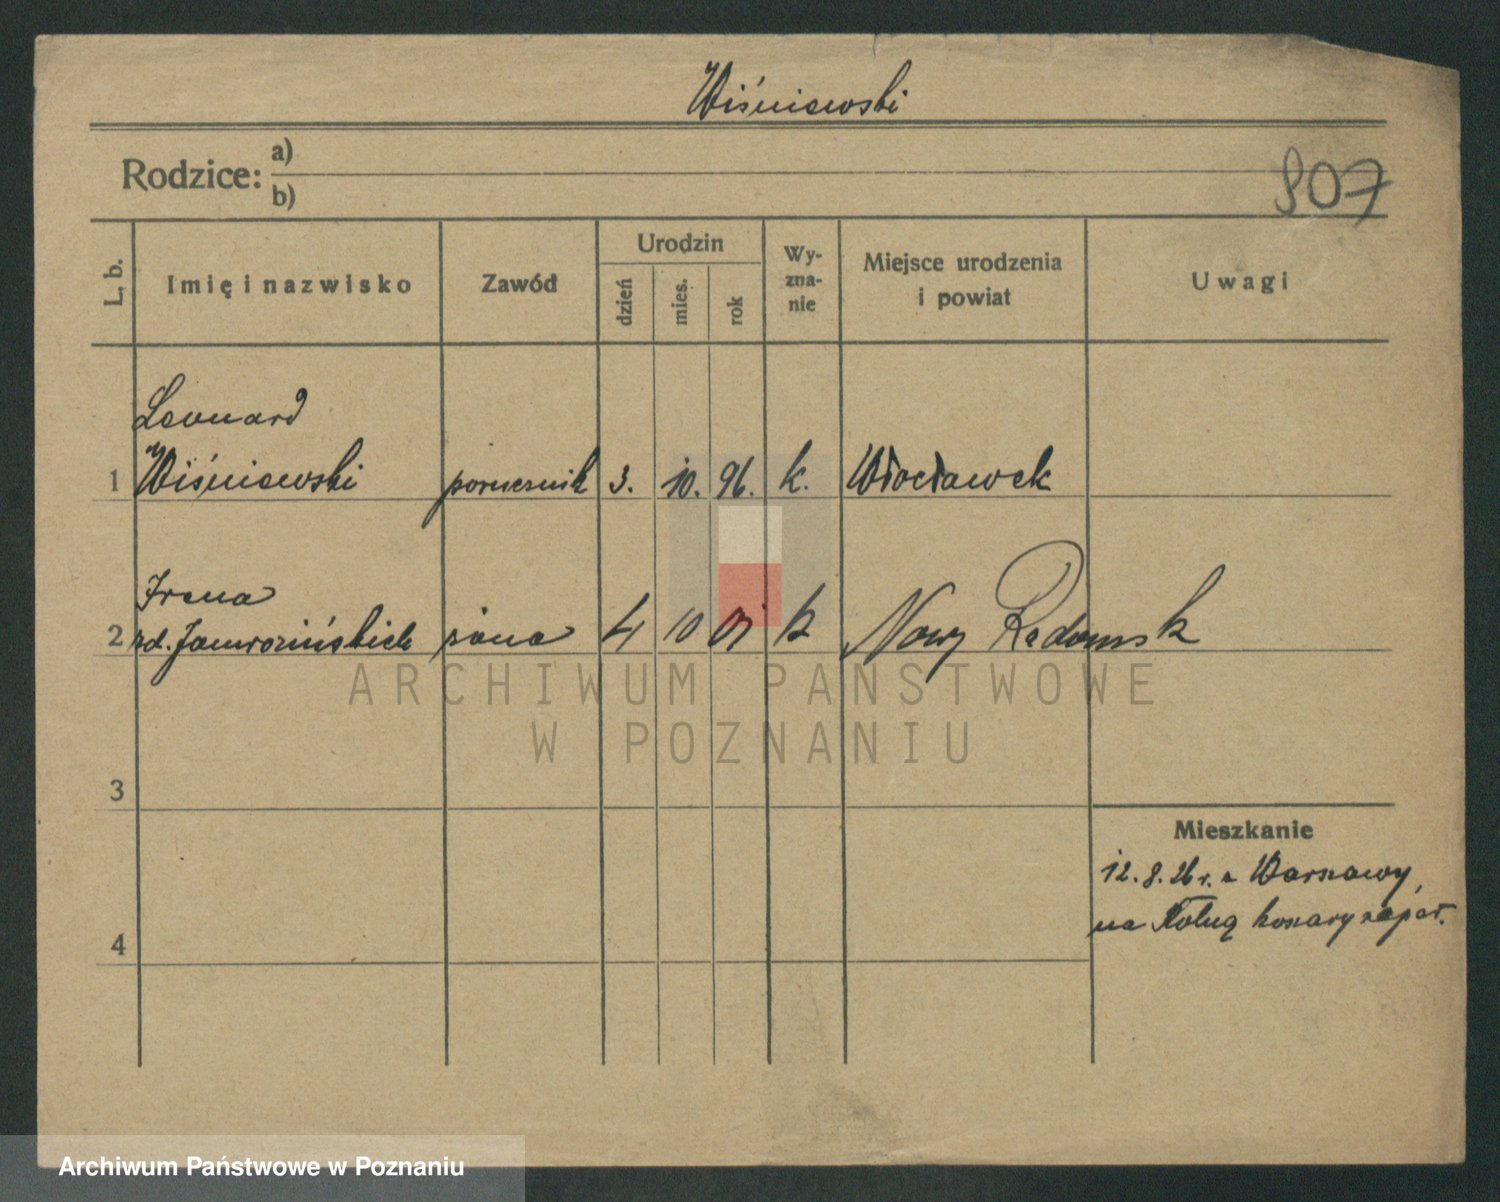 Wiśniewski
Rodzice: a)
b)
907
L. b. Imię i nazwisko Zawód Urodzin dzień mies. rok Wy-zna-nie Miejsce urodzenia i powiat Uwagi
Leonard
1 Wiśniewski porucznik 3. 10. 96. k. Włocławek
Irena
2 zd. żona 4 10 01 k Nowy Radomsk
ARCHIWUM PAŃSTWOWE
W POZNANIU
3
Mieszkanie
12.8.26 r. z Warszawy,
na koszary
4
Archiwum Państwowe w Poznaniu